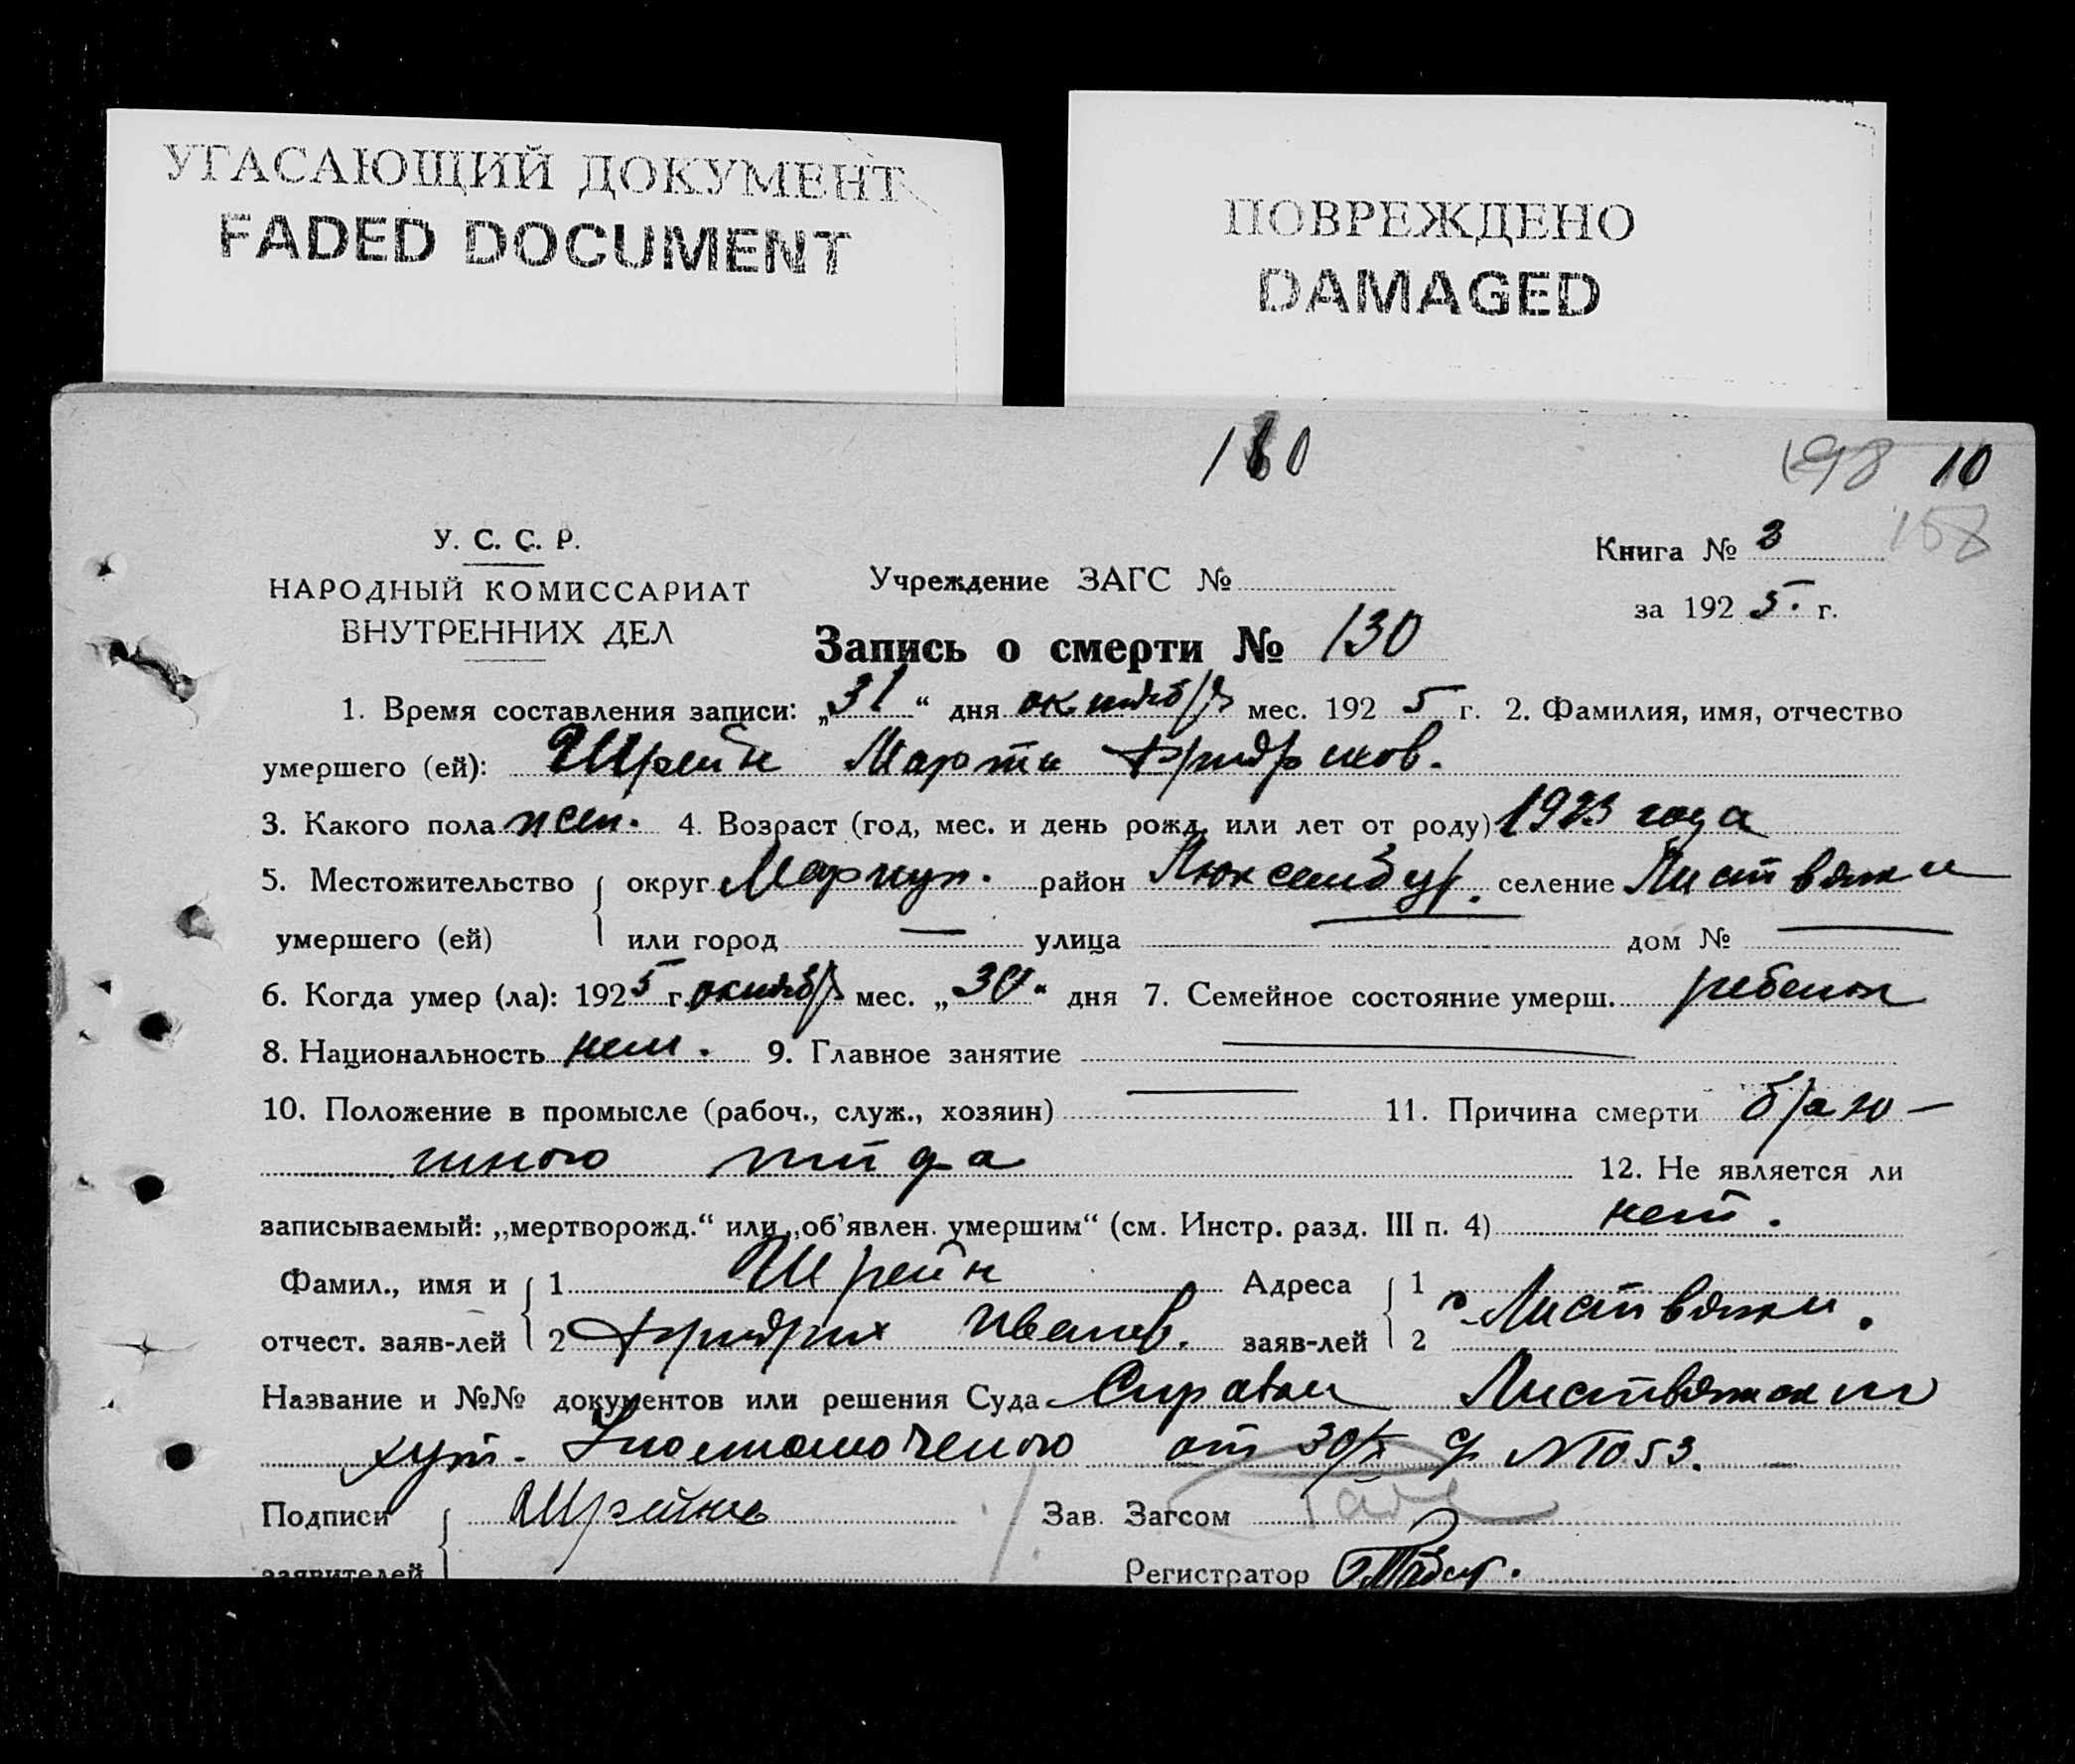 УГАСАЮЩИЙ ДОКУМЕНТ
FADED DOCUMENT
ПОВРЕЖДЕНО
DAMAGED
180 198 10
158
У. С. С. Р.
НАРОДНЫЙ КОМИССАРИАТ
ВНУТРЕННИХ ДЕЛ
Учреждение ЗАГС №
Книга № 3
за 1925. г.
Запись о смерти № 130
1. Время составления записи: „31“ дня октября мес. 1925 г. 2. Фамилия, имя, отчество
умершего (ей): Шрейн Марта Фридрихов.
3. Какого пола жен. 4. Возраст (год, мес. и день рожд. или лет от роду) 1923 года
5. Местожительство округ Мариуп. район Люксембур. селение Листвянки
умершего (ей) или город — улица — дом № —
6. Когда умер (ла): 1925 г. октября мес. „30“ дня 7. Семейное состояние умерш. ребенок
8. Национальность нем. 9. Главное занятие —
10. Положение в промысле (рабоч., служ., хозяин) — 11. Причина смерти брю-
шного тифа 12. Не является ли
записываемый: „мертворожд.“ или „об’явлен. умершим“ (см. Инстр. разд. III п. 4) нет.
Фамил., имя и 1 Шрейн Адреса 1
отчест. заяв-лей 2 Фридрих Иванов. заяв-лей 2 Листвянки.
Название и №№ документов или решения Суда Справки Листвянский
хут. Уполномоченого от 30/X с/г №1053.
Подписи Шрейн Зав. Загсом
заявителей Регистратор